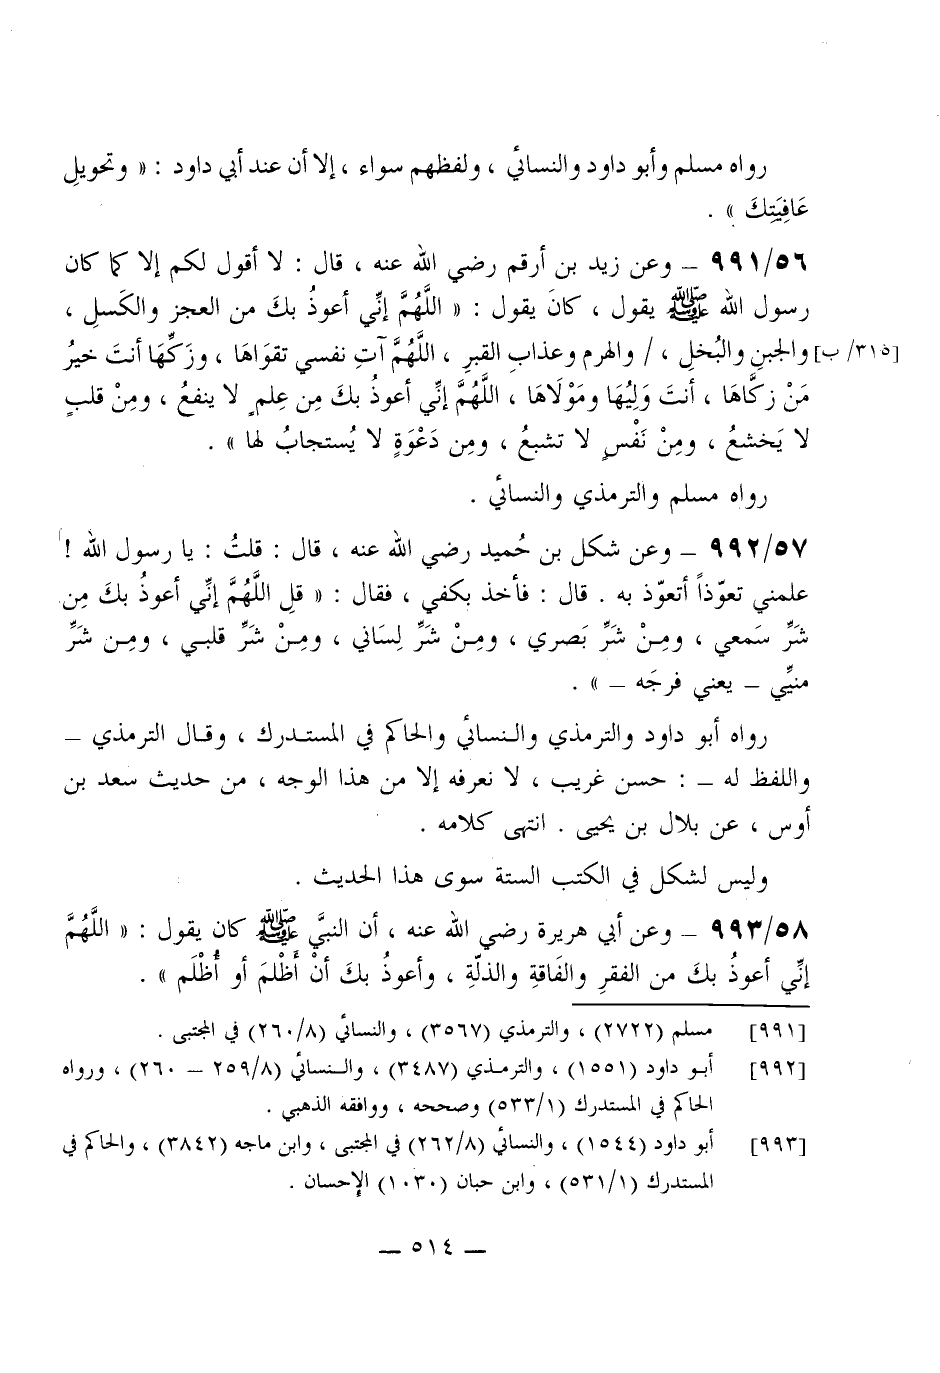 رواه مسلم وأبو داود والنسائي ، ولفظهم سواء ، إلا أن عند أبي داود : « وتحويلِ
عَافِيَتِكَ » .
٩٩١/٥٦ ــ وعن زيد بن أرقم رضي الله عنه ، قال : لا أقول لكم إلا كما كان
رسول الله ﷺ يقول ، كانَ يقول : « اللَّهُمَّ إنِّي أعوذُ بكَ من العجز والكَسلِ ،
[٣١٥/ ب] والجبنِ والبُخلِ ، / والهرم وعذابِ القبرِ ، اللَّهُمَّ آتِ نفسي تقوَاهَا ، وزَكِّهَا أنتَ خيرُ
مَنْ زكَّاهَا ، أنتَ وَلِيُهَا ومَوْلَاهَا ، اللَّهُمَّ إنِّي أعوذُ بكَ مِن عِلمٍ لا ينفعُ ، ومِنْ قلبٍ
لا يَخشعُ ، ومِنْ نَفْسٍ لا تشبعُ ، ومِن دَعْوَةٍ لا يُستجابُ لها » .
رواه مسلم والترمذي والنسائي .
٩٩٢/٥٧ ــ وعن شكل بن حُميد رضي الله عنه ، قال : قلتُ : يا رسول الله !
علمني تعوّذاً أتعوّذ به . قال : فأخذ بكفي ، فقال : « قلِ اللَّهُمَّ إنِّي أعوذُ بكَ مِن
شَرِّ سَمعي ، ومِنْ شَرِّ بَصري ، ومِنْ شَرِّ لِسَاني ، ومِنْ شَرِّ قلبي ، ومِن شَرِّ
منيِّي ــ يعني فرجَه ــ » .
رواه أبو داود والترمذي والنسائي والحاكم في المستدرك ، وقال الترمذي ــ
واللفظ له ــ : حسن غريب ، لا نعرفه إلا من هذا الوجه ، من حديث سعد بن
أوس ، عن بلال بن يحيى . انتهى كلامه .
وليس لشكل في الكتب الستة سوى هذا الحديث .
٩٩٣/٥٨ ــ وعن أبي هريرة رضي الله عنه ، أن النبيَّ ﷺ كان يقول : « اللَّهُمَّ
إنِّي أعوذُ بكَ من الفقرِ والفَاقةِ والذلّةِ ، وأعوذُ بكَ أنْ أَظْلِمَ أو أُظْلَم » .
[٩٩١] مسلم (٢٧٢٢) ، والترمذي (٣٥٦٧) ، والنسائي (٢٦٠/٨) في المجتبى .
[٩٩٢] أبو داود (١٥٥١) ، والترمذي (٣٤٨٧) ، والنسائي (٢٥٩/٨ ــ ٢٦٠) ، ورواه
الحاكم في المستدرك (٥٣٣/١) وصححه ، ووافقه الذهبي .
[٩٩٣] أبو داود (١٥٤٤) ، والنسائي (٢٦٢/٨) في المجتبى ، وابن ماجه (٣٨٤٢) ، والحاكم في
المستدرك (٥٣١/١) ، وابن حبان (١٠٣٠) الإحسان .
ــ ٥١٤ ــ